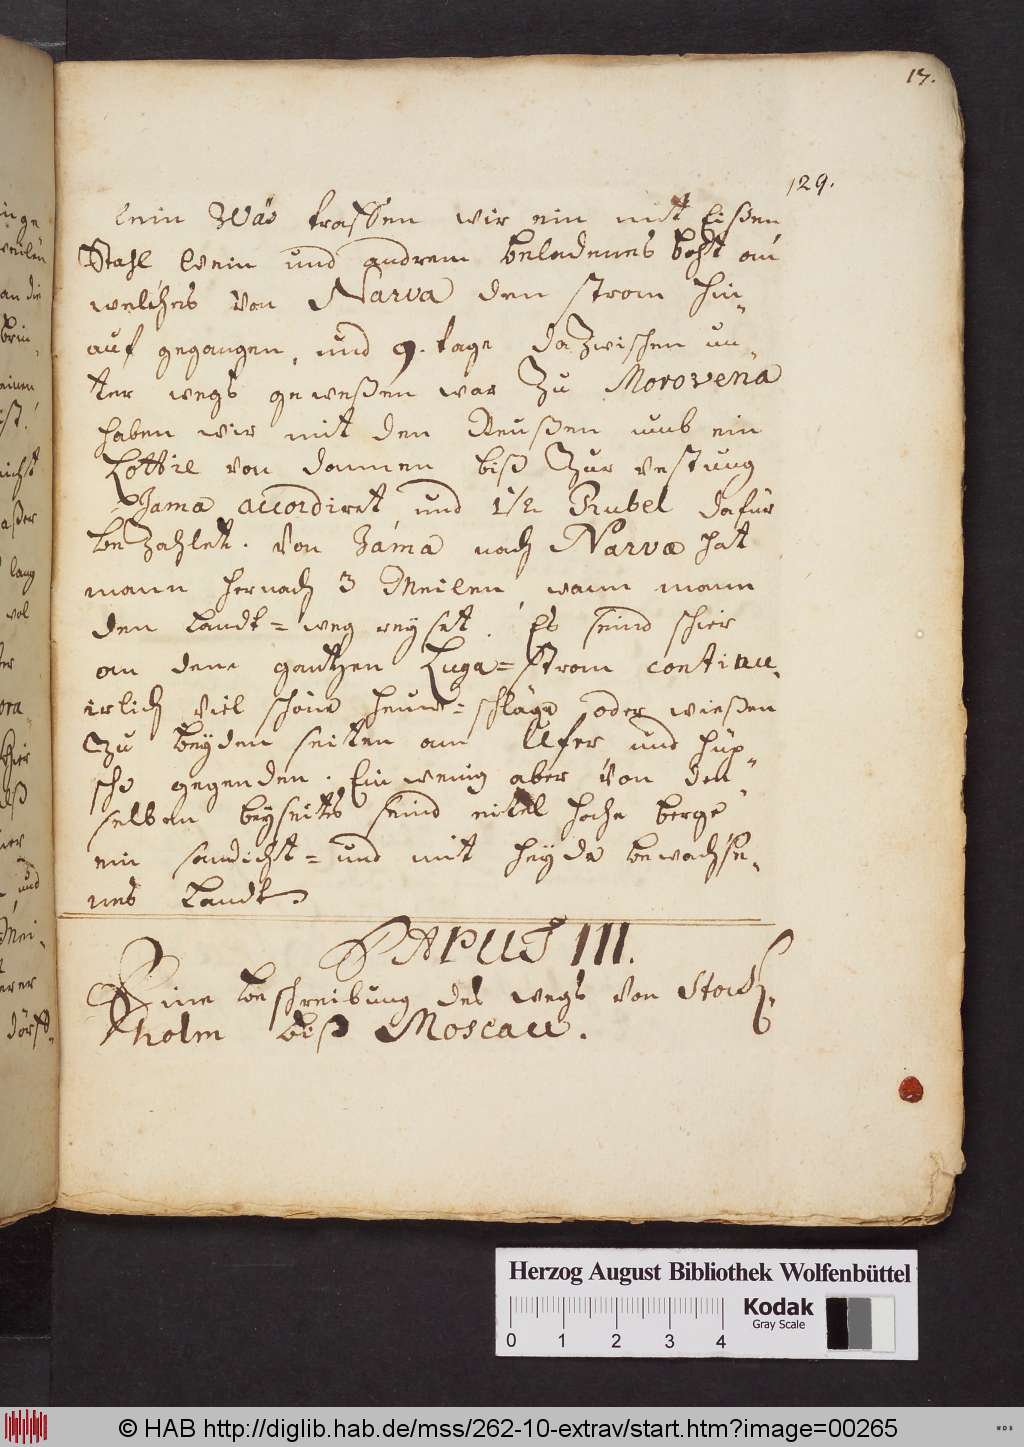 17.
129.
lein Wäs traffen wir ein mit Eißen
Stahl Wein und andrem beladenes boht an
welches von Narva den strom hin„
auf gegangen, und 9. tage dazwischen un„
ter wegs geweßen war Zu Morovena
haben wir mit den Reußen umb ein
Lottie von dannen biß Zur vestung
Jama accordiret und 1½ Rubel dafür
bezahlet. Von Jama nach Narva hat
mann hernach 3 Meilen, wann mann
den landt=weg reyset. Es seind schier
an dem gantzen Luga=strom continu„
irlich viel schöne heuw=schläge oder wießen
Zu beyden seiten am Ufer und hüp„
sche gegenden. Ein wenig aber von den„
selben beyseits seind eitel hohe berge
ein sandicht= und mit heyde bewachße„
nes Landt.
PAPUS III.
Eine beschreibung des wegs von Stock„
holm biß Moscau.
inge
an die
brin„
ist!
nicht
aßer
lang
vol
ter
hier
und
Mei„
erer
dörff„
Herzog August Bibliothek Wolfenbüttel
0 1 2 3 4
Kodak
Gray Scale
© HAB http://diglib.hab.de/mss/262-10-extrav/start.htm?image=00265